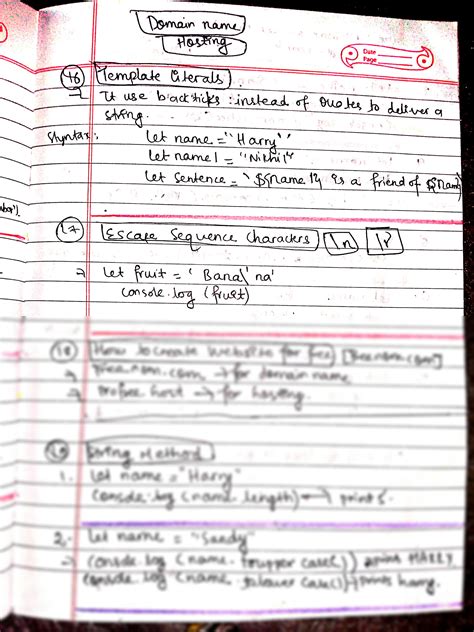 Domain name
Hosting
Date
Page
16 Template literals
→ It use backticks instead of Quotes to deliver a
string.
Let name = "Harry"
Let name1 = "Nikhil"
Let sentence = `${name1} is a friend of ${nam
17 Escape Sequence Characters \n
→ Let fruit = 'Bana\'na'
console.log (fruit)
18 How to create website for free
.com → for domain name
host → for hosting.
String Method
1. Let name = "Harry"
console.log (name.length) → print 5.
2. Let name = "Sandy"
→ console.log (name. touppercase()) print HARRY
console.log (name. tolowercase() prints harry.